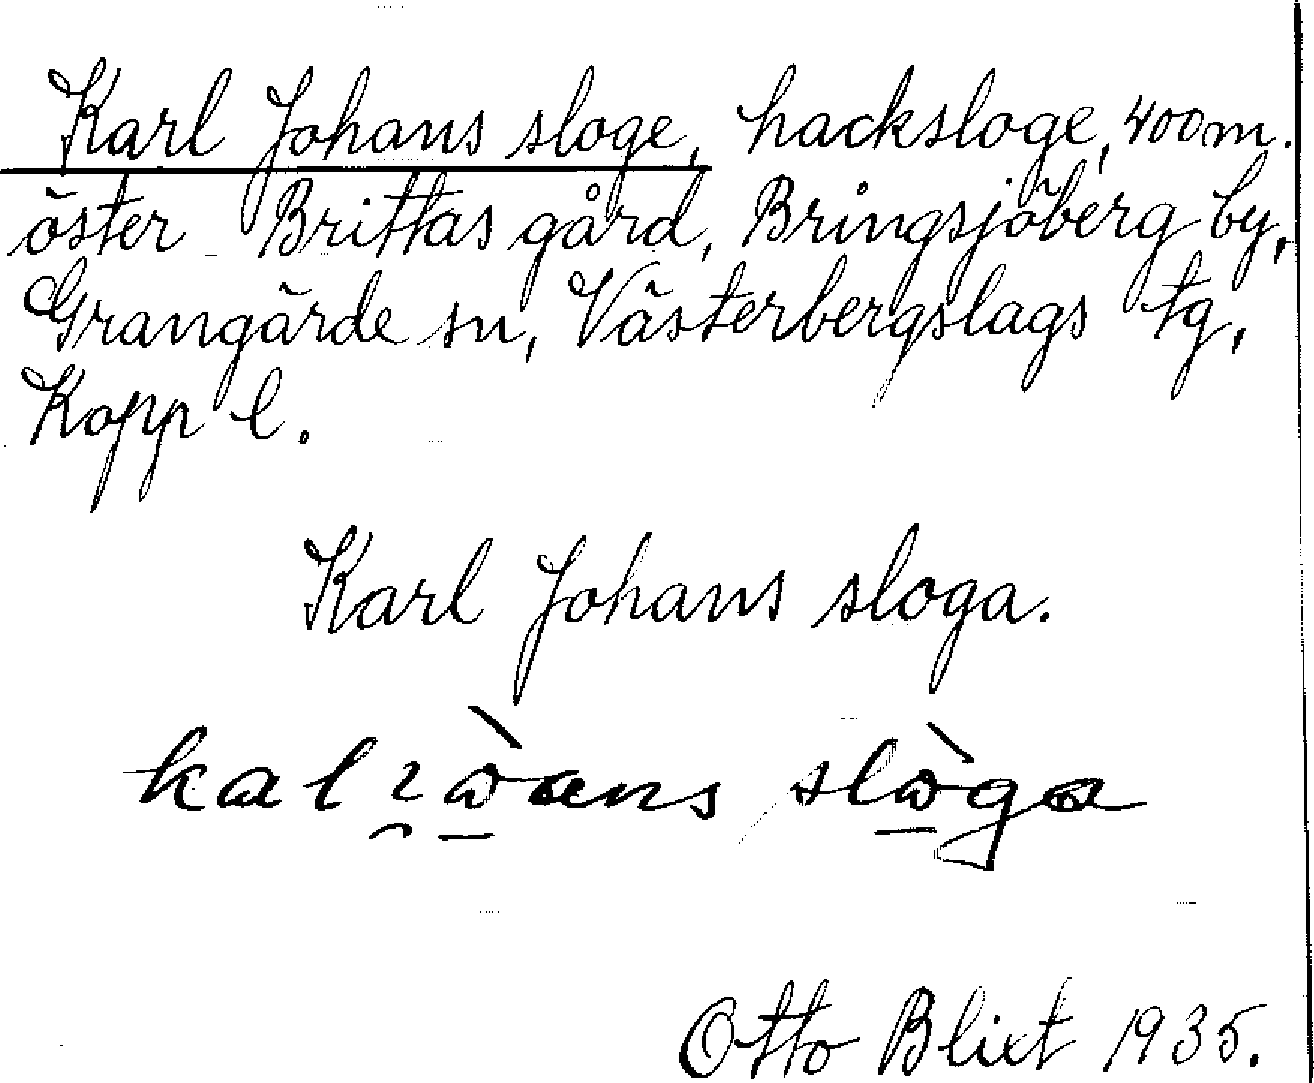 Karl Johans sloge, hacksloge, 400 m.
öster Brittas gård, Bringsjöberg by,
Grangärde sn, Västerbergslags tg,
Kopp l.
Karl Johans sloga.
Otto Blixt 1935.